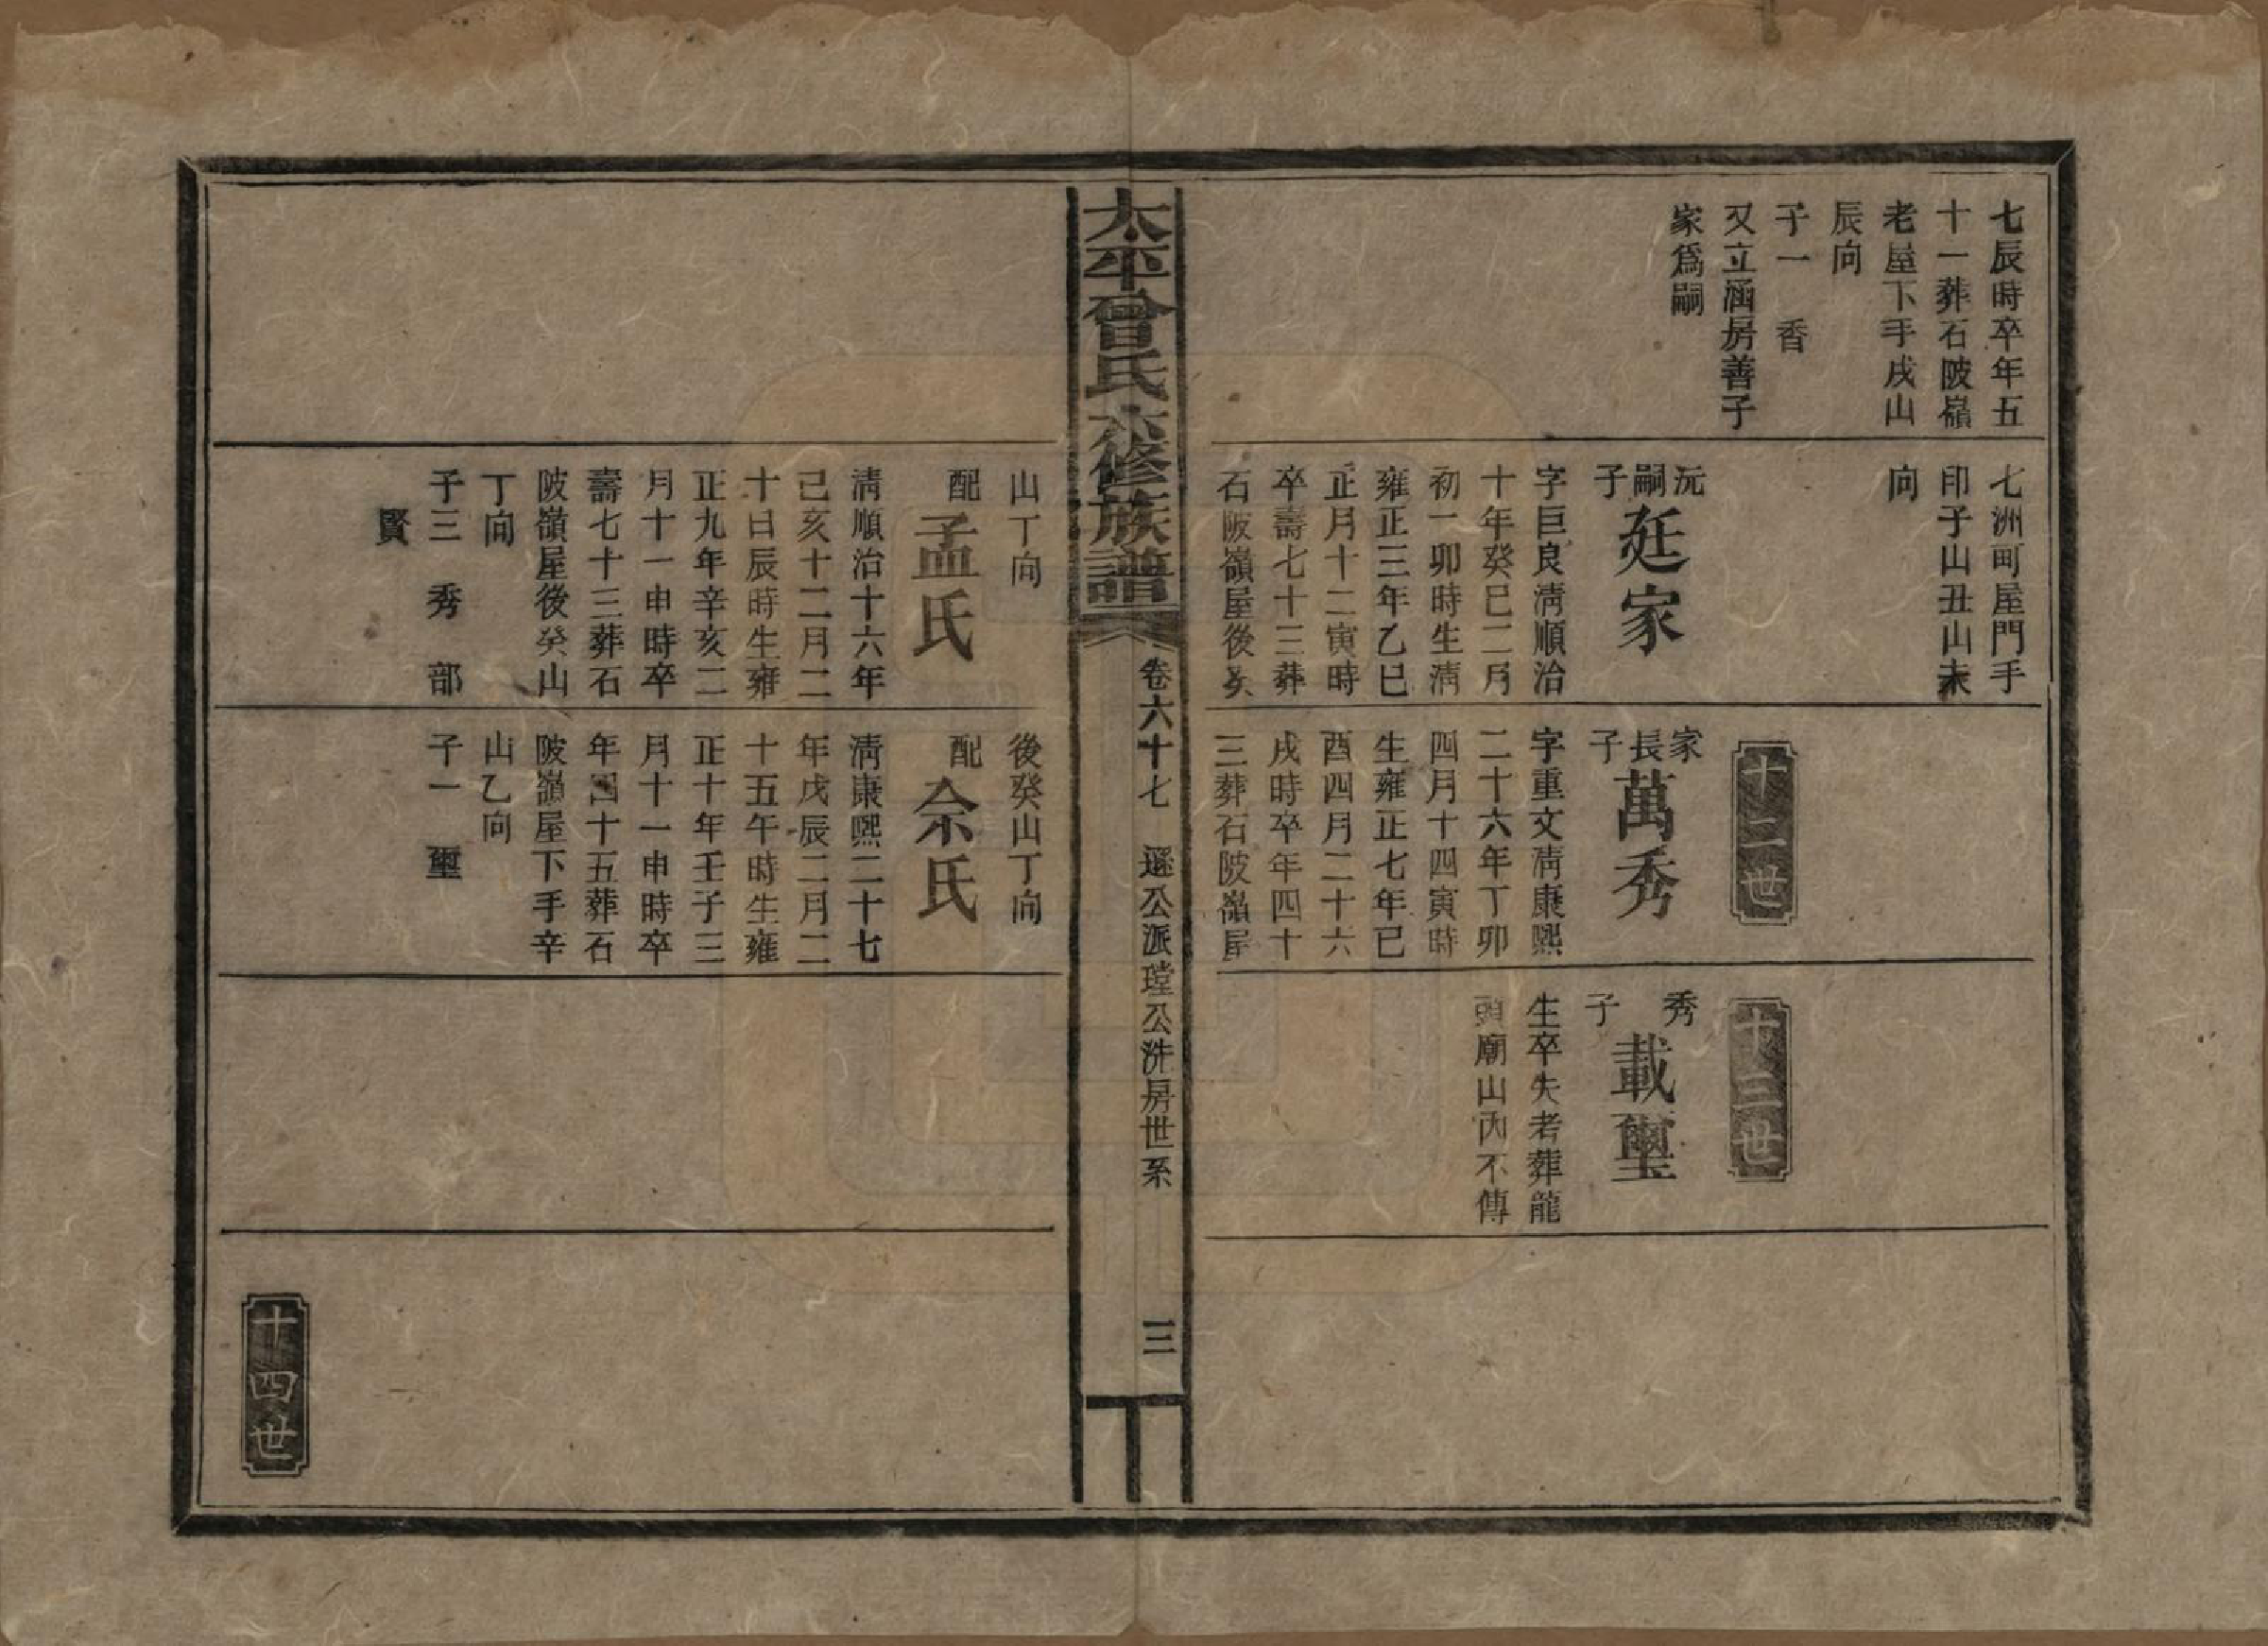 七辰時卒年五
十一葬石陂嶺
老屋下手戌山
辰向
子一　香
又立涵房善子
家爲嗣
七洲町屋門手
印子山丑山未
向
沅嗣子
廷家
字巨良淸順治
十年癸巳二月
初一卯時生淸
雍正三年乙巳
正月十二寅時
卒壽七十三葬
石陂嶺屋後癸
十二世
家長子
萬秀
字重文淸康熙
二十六年丁卯
四月十四寅時
生雍正七年己
酉四月二十六
戌時卒年四十
三葬石陂嶺屋
十三世
秀子
載璽
生卒失考葬龍
頭廟山內不傳
太平曾氏六修族譜
卷六十七　遜公派瑝公洪房世系
三
山丁向
配
孟氏
淸順治十六年
己亥十二月二
十日辰時生雍
正九年辛亥二
月十一申時卒
壽七十三葬石
陂嶺屋後癸山
丁向
子三　秀　部
賢
後癸山丁向
配
佘氏
淸康熙二十七
年戊辰二月二
十五午時生雍
正十年壬子三
月十一申時卒
年四十五葬石
陂嶺屋下手辛
山乙向
子一　璽
十四世